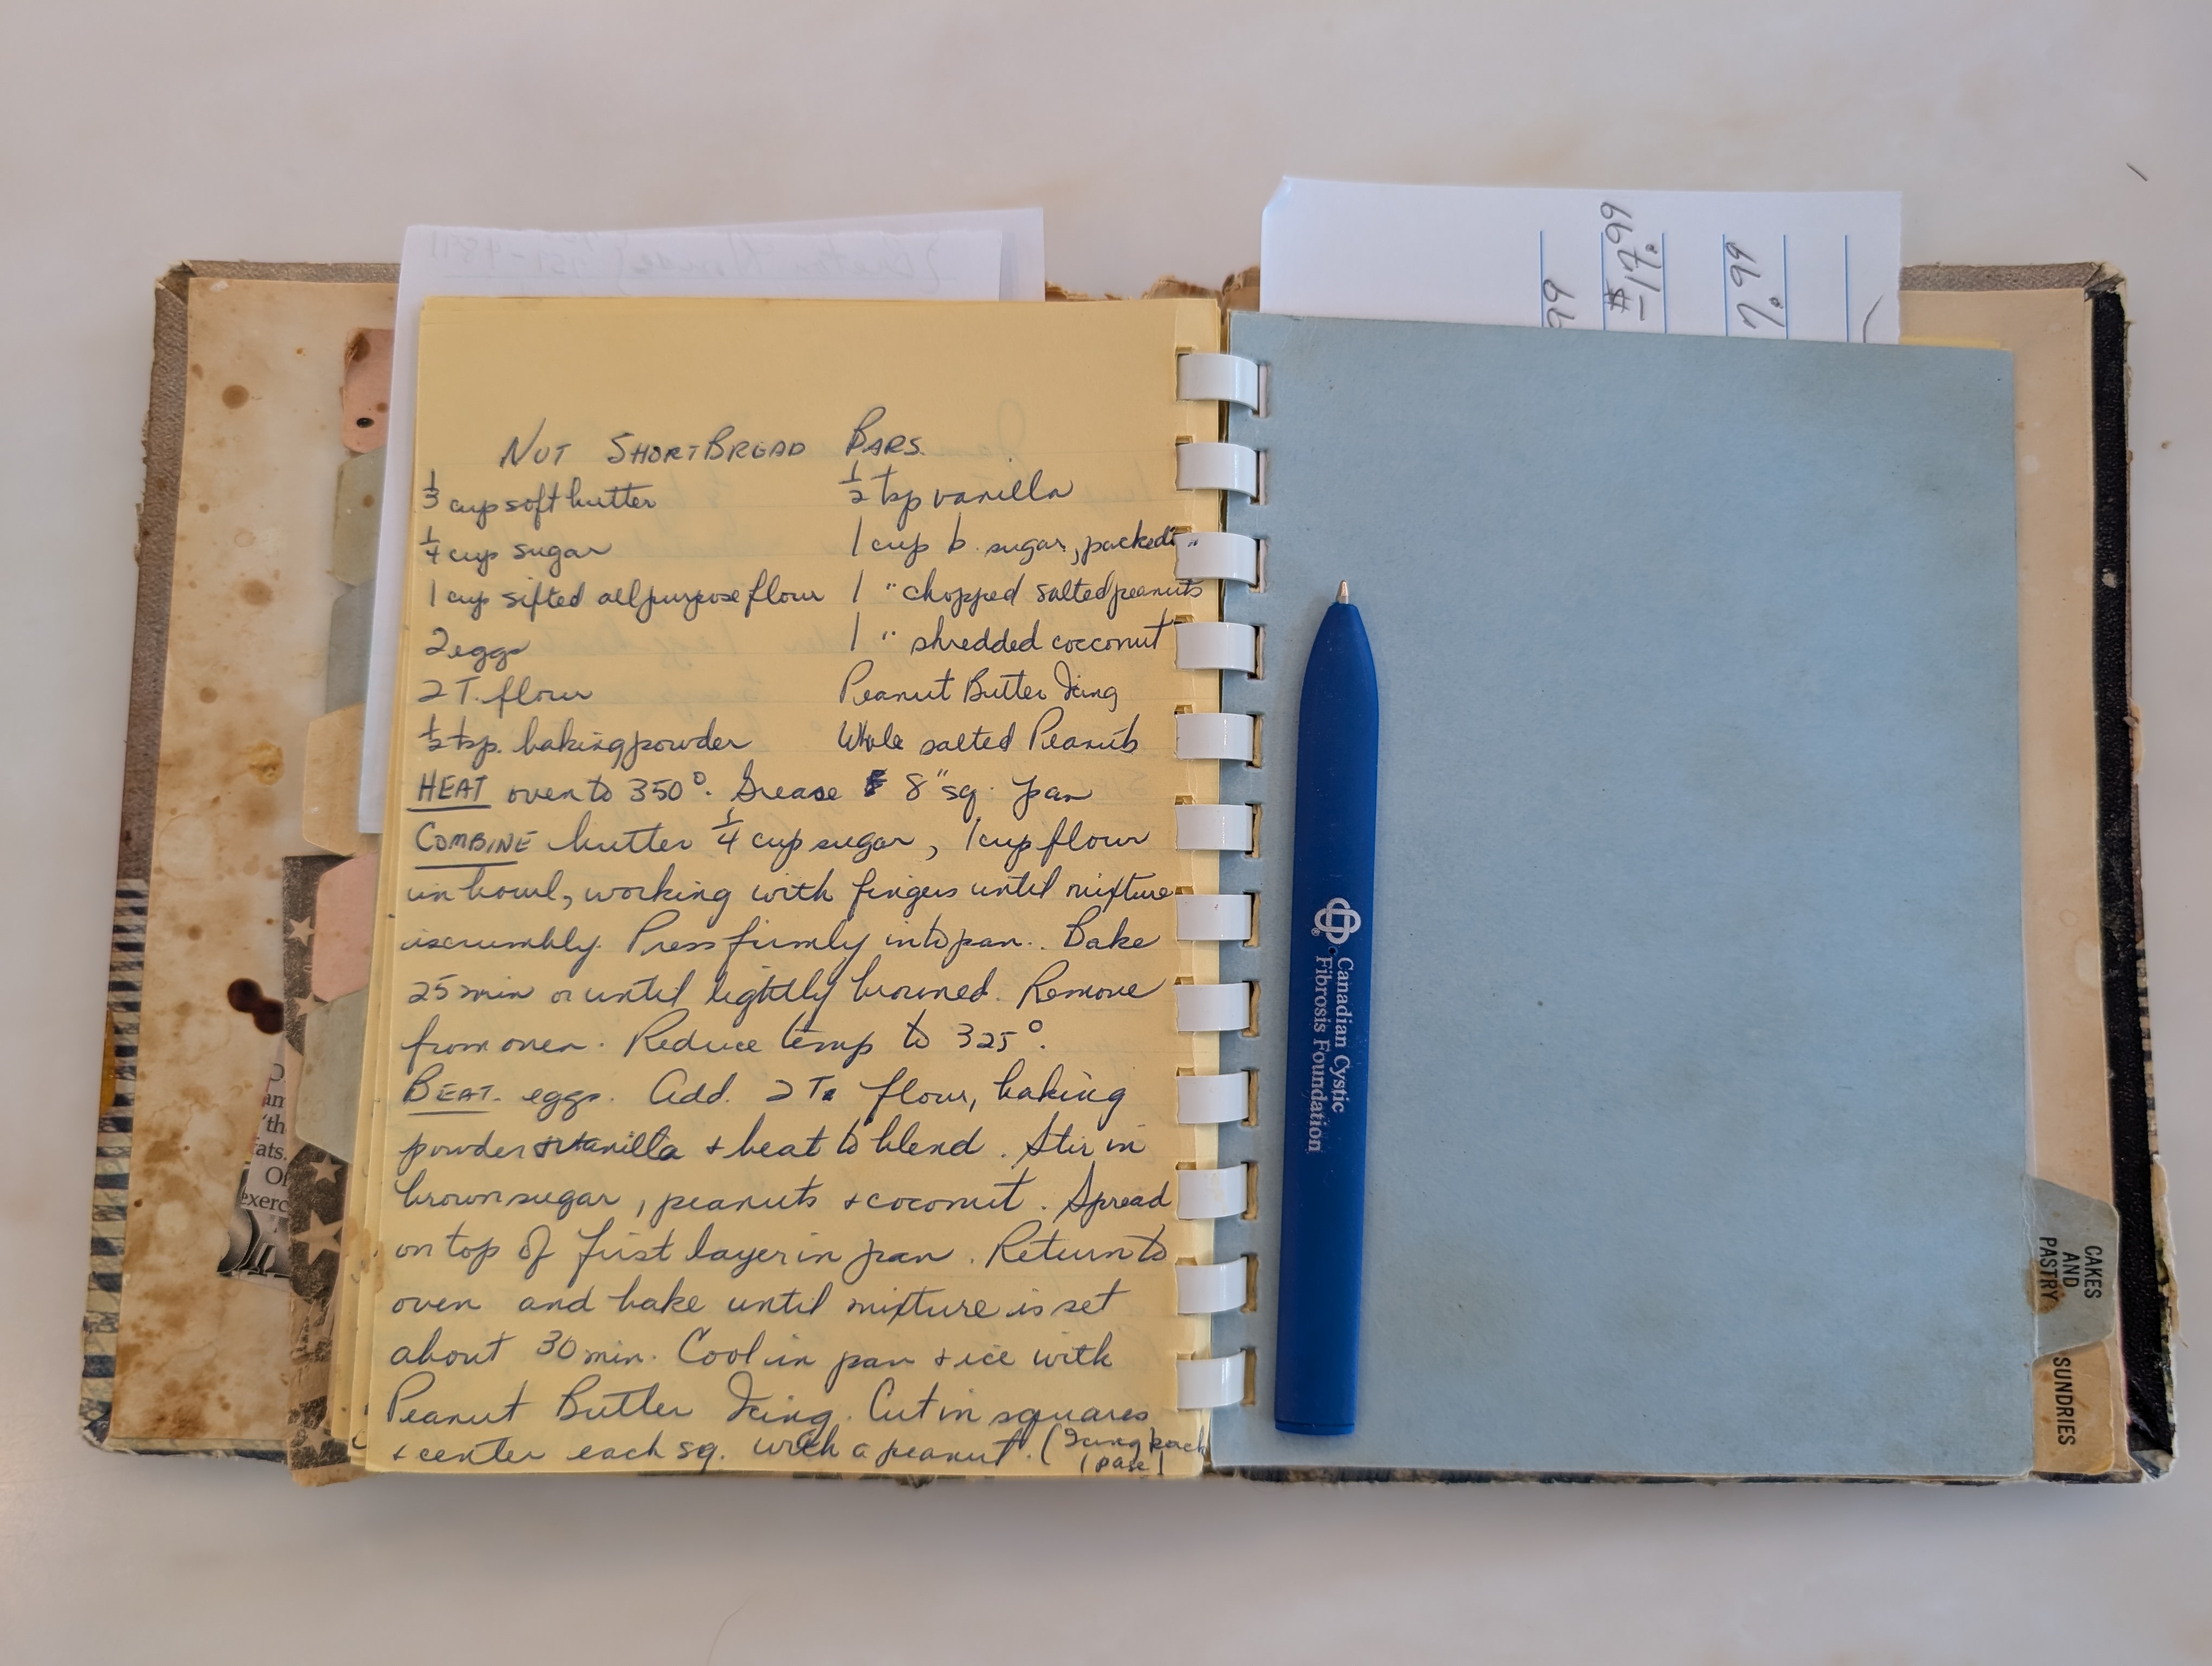 NUT SHORTBREAD BARS.
1/3 cup soft butter
1/4 cup sugar
1 cup sifted all purpose flour
2 eggs
2 T. flour
1/2 tsp. baking powder
1/2 tsp vanilla
1 cup b. sugar, packed
1 " chopped salted peanuts
1 " shredded cocconut
Peanut Butter Icing
Whole salted Peanuts
HEAT oven to 350°. Grease 8" sq. pan
COMBINE butter 1/4 cup sugar, 1 cup flour
in bowl, working with fingers until mixture
is crumbly. Press firmly into pan.. Bake
25 min or until lightly browned. Remove
from oven. Reduce temp to 325°.
BEAT. eggs. Add. 2 T. flour, baking
powder + vanilla + beat to blend. Stir in
brown sugar, peanuts + coconut. Spread
on top of first layer in pan. Return to
oven and bake until mixture is set
about 30 min. Cool in pan + ice with
Peanut Butter Icing. Cut in squares
+ center each sq. with a peanut. (Icing back
page)
Canadian Cystic
Fibrosis Foundation
CAKES
AND
PASTRY
SUNDRIES
$17.99
7.99
99
am
"th
fats.
Of
exerc